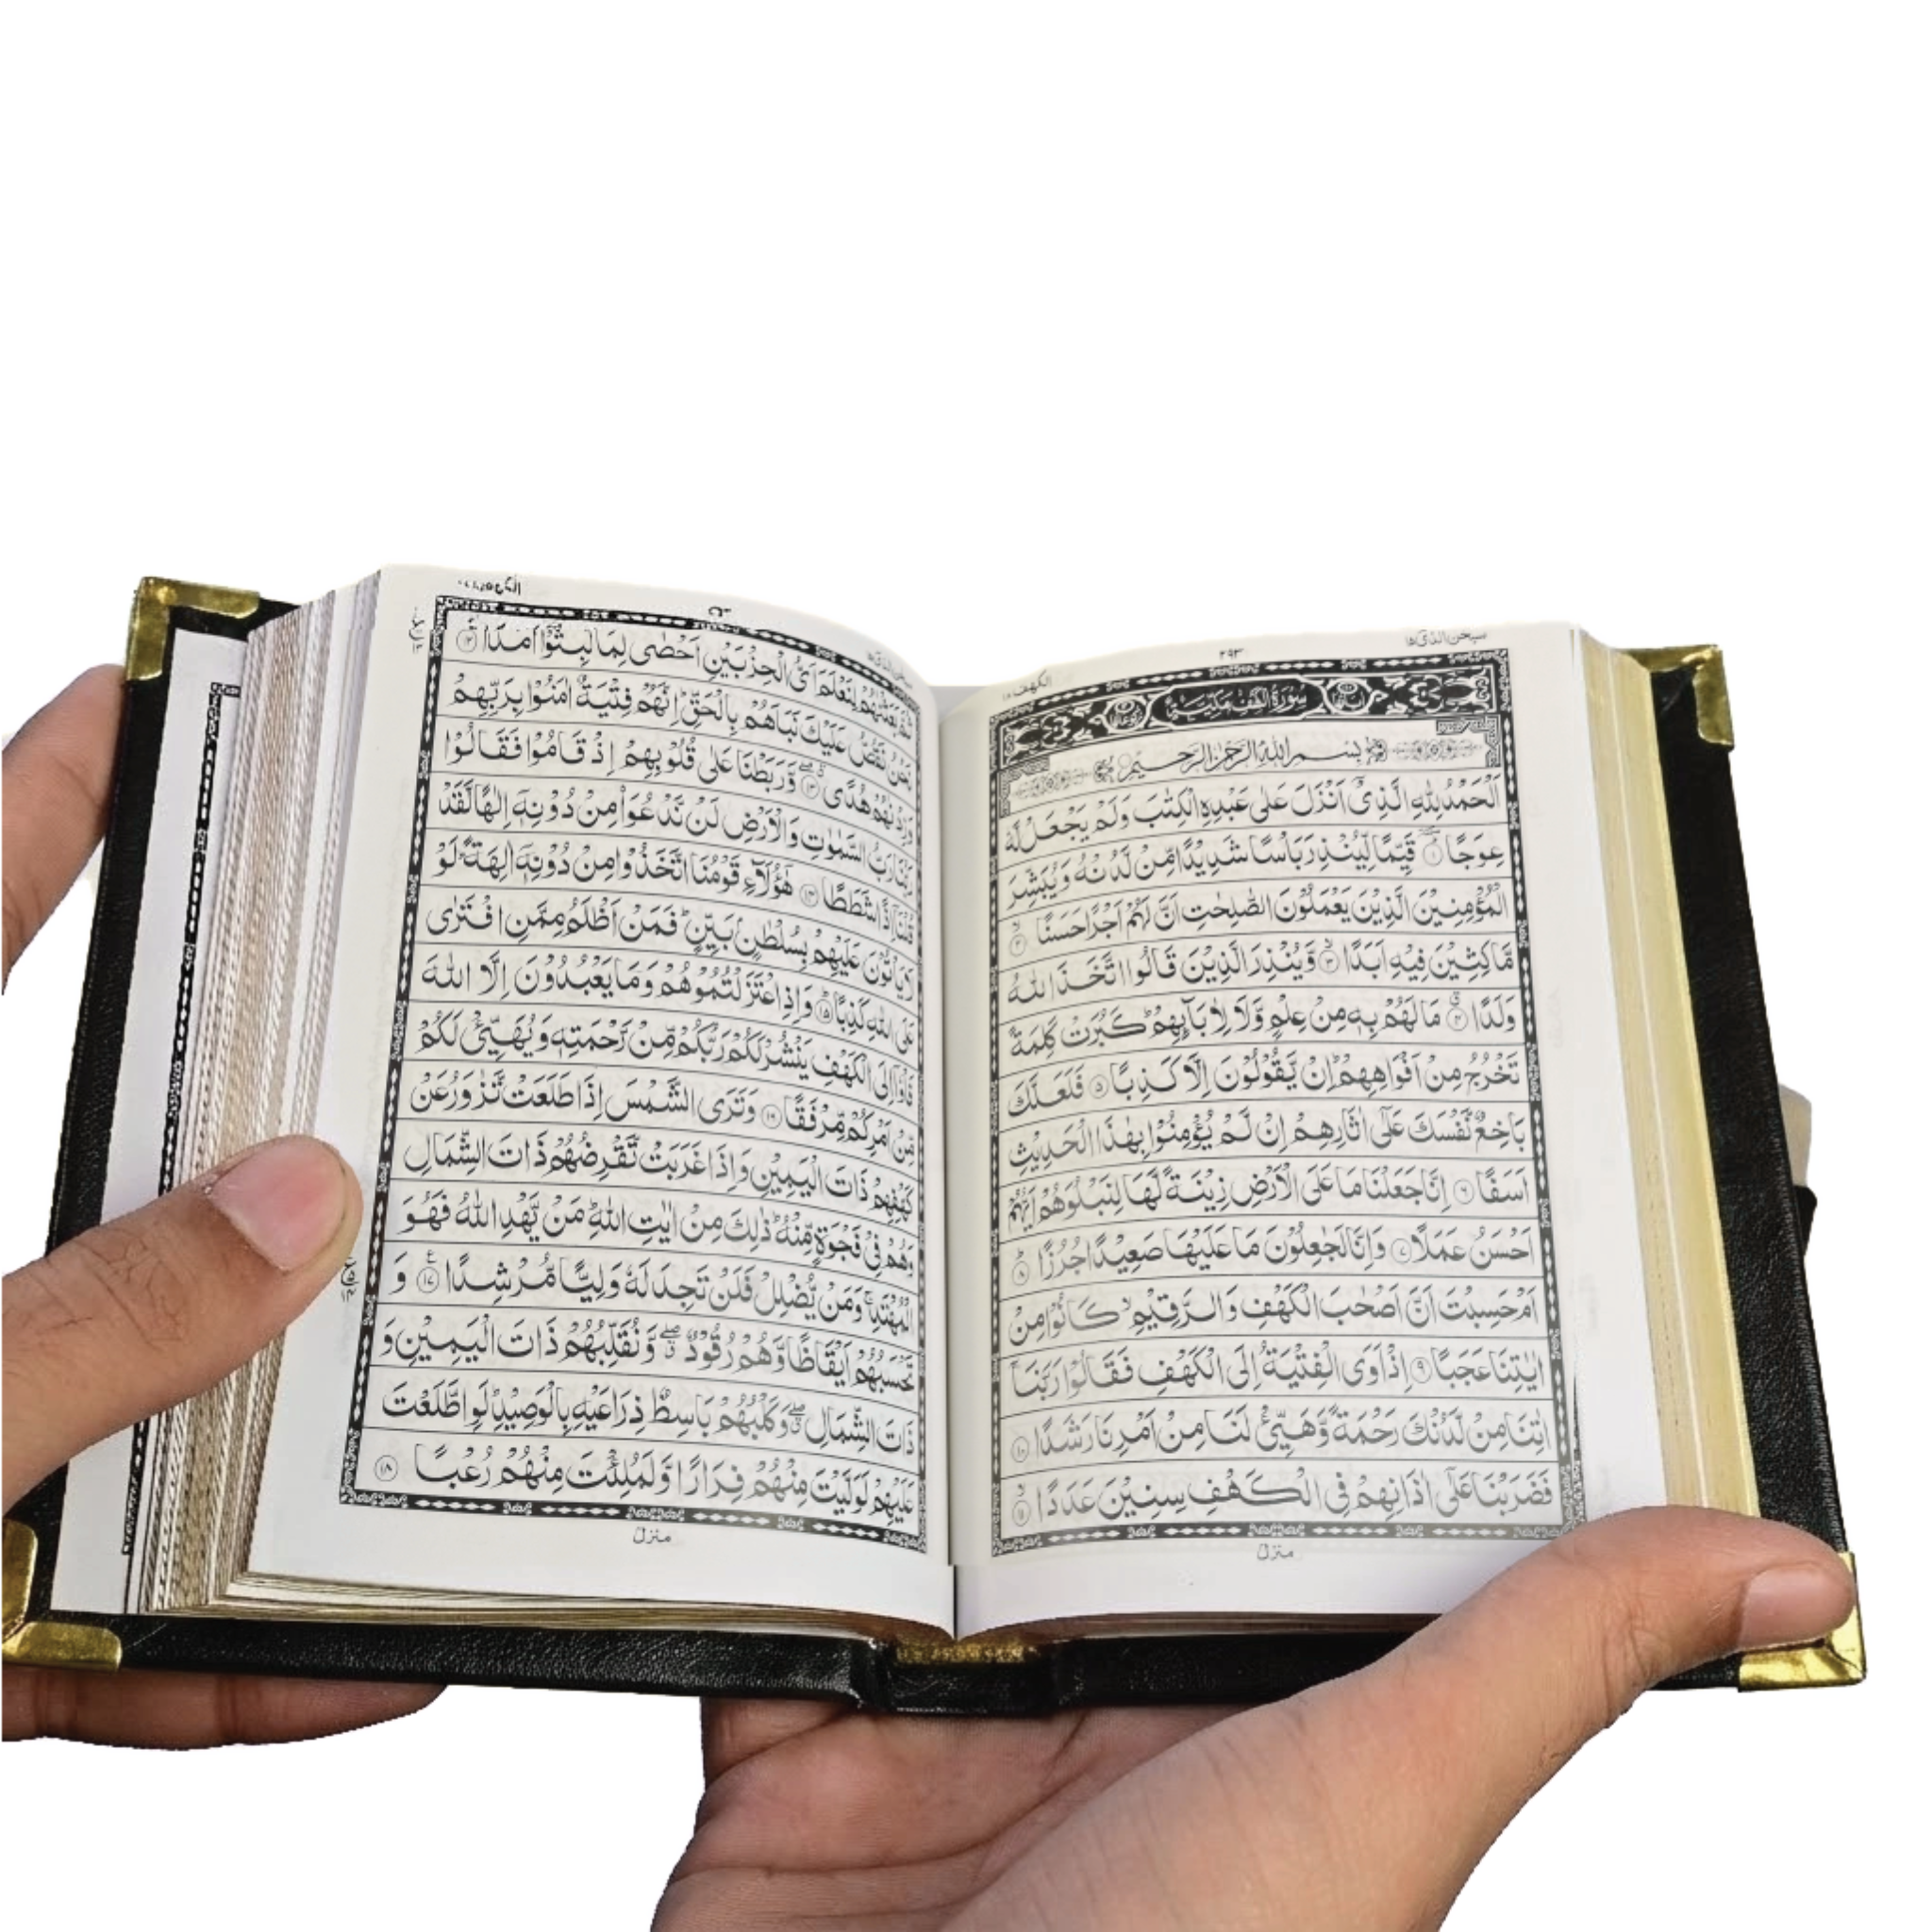 سبحن الذی ۱۵
۲۹۳
الکهف ۱۸
سُوْرَةُ الْكَهْفِ مَكِّيَّةٌ
بِسْمِ اللهِ الرَّحْمٰنِ الرَّحِيْمِ
اَلْحَمْدُ لِلّٰهِ الَّذِیْۤ اَنْزَلَ عَلٰى عَبْدِهِ الْكِتٰبَ وَلَمْ يَجْعَلْ لَّهٗ
عِوَجًا ۱ قَيِّمًا لِّيُنْذِرَ بَاْسًا شَدِيْدًا مِّنْ لَّدُنْهُ وَيُبَشِّرَ
الْمُؤْمِنِيْنَ الَّذِيْنَ يَعْمَلُوْنَ الصّٰلِحٰتِ اَنَّ لَهُمْ اَجْرًا حَسَنًا ۲
مَّاكِثِيْنَ فِيْهِ اَبَدًا ۳ وَّيُنْذِرَ الَّذِيْنَ قَالُوا اتَّخَذَ اللهُ
وَلَدًا ۴ مَا لَهُمْ بِهٖ مِنْ عِلْمٍ وَّلَا لِاٰبَآئِهِمْ ؕ كَبُرَتْ كَلِمَةً
تَخْرُجُ مِنْ اَفْوَاهِهِمْ ؕ اِنْ يَّقُوْلُوْنَ اِلَّا كَذِبًا ۵ فَلَعَلَّكَ
بَاخِعٌ نَّفْسَكَ عَلٰۤى اٰثَارِهِمْ اِنْ لَّمْ يُؤْمِنُوْا بِهٰذَا الْحَدِيْثِ
اَسَفًا ۶ اِنَّا جَعَلْنَا مَا عَلَى الْاَرْضِ زِيْنَةً لَّهَا لِنَبْلُوَهُمْ اَيُّهُمْ
اَحْسَنُ عَمَلًا ۷ وَاِنَّا لَجٰعِلُوْنَ مَا عَلَيْهَا صَعِيْدًا جُرُزًا ؕ ۸
اَمْ حَسِبْتَ اَنَّ اَصْحٰبَ الْكَهْفِ وَالرَّقِيْمِ ۙ كَانُوْا مِنْ
اٰيٰتِنَا عَجَبًا ۹ اِذْ اَوَى الْفِتْيَةُ اِلَى الْكَهْفِ فَقَالُوْا رَبَّنَاۤ
اٰتِنَا مِنْ لَّدُنْكَ رَحْمَةً وَّهَيِّئْ لَنَا مِنْ اَمْرِنَا رَشَدًا ۱۰
فَضَرَبْنَا عَلٰۤى اٰذَانِهِمْ فِى الْكَهْفِ سِنِيْنَ عَدَدًا ۱۱
منزل
ثُمَّ بَعَثْنٰهُمْ لِنَعْلَمَ اَىُّ الْحِزْبَيْنِ اَحْصٰى لِمَا لَبِثُوْۤا اَمَدًا ۱۲
نَحْنُ نَقُصُّ عَلَيْكَ نَبَاَهُمْ بِالْحَقِّ ؕ اِنَّهُمْ فِتْيَةٌ اٰمَنُوْا بِرَبِّهِمْ
وَزِدْنٰهُمْ هُدًى ۱۳ وَّرَبَطْنَا عَلٰى قُلُوْبِهِمْ اِذْ قَامُوْا فَقَالُوْا
رَبُّنَا رَبُّ السَّمٰوٰتِ وَالْاَرْضِ لَنْ نَّدْعُوَا۠ مِنْ دُوْنِهٖۤ اِلٰهًا لَّقَدْ
قُلْنَاۤ اِذًا شَطَطًا ۱۴ هٰۤؤُلَآءِ قَوْمُنَا اتَّخَذُوْا مِنْ دُوْنِهٖۤ اٰلِهَةً ؕ لَوْ
لَا يَاْتُوْنَ عَلَيْهِمْ بِسُلْطٰنٍۭ بَيِّنٍ ؕ فَمَنْ اَظْلَمُ مِمَّنِ افْتَرٰى
عَلَى اللهِ كَذِبًا ؕ ۱۵ وَاِذِ اعْتَزَلْتُمُوْهُمْ وَمَا يَعْبُدُوْنَ اِلَّا اللهَ
فَاْوٗۤا اِلَى الْكَهْفِ يَنْشُرْ لَكُمْ رَبُّكُمْ مِّنْ رَّحْمَتِهٖ وَيُهَيِّئْ لَكُمْ
مِّنْ اَمْرِكُمْ مِّرْفَقًا ۱۶ وَتَرَى الشَّمْسَ اِذَا طَلَعَتْ تَّزٰوَرُ عَنْ
كَهْفِهِمْ ذَاتَ الْيَمِيْنِ وَاِذَا غَرَبَتْ تَّقْرِضُهُمْ ذَاتَ الشِّمَالِ
وَهُمْ فِىْ فَجْوَةٍ مِّنْهُ ؕ ذٰلِكَ مِنْ اٰيٰتِ اللهِ ؕ مَنْ يَّهْدِ اللهُ فَهُوَ
الْمُهْتَدِ ۚ وَمَنْ يُّضْلِلْ فَلَنْ تَجِدَ لَهٗ وَلِيًّا مُّرْشِدًا ۱۷ وَ
تَحْسَبُهُمْ اَيْقَاظًا وَّهُمْ رُقُوْدٌ ۖ وَّنُقَلِّبُهُمْ ذَاتَ الْيَمِيْنِ وَ
ذَاتَ الشِّمَالِ ۖ وَكَلْبُهُمْ بَاسِطٌ ذِرَاعَيْهِ بِالْوَصِيْدِ ؕ لَوِ اطَّلَعْتَ
عَلَيْهِمْ لَوَلَّيْتَ مِنْهُمْ فِرَارًا وَّلَمُلِئْتَ مِنْهُمْ رُعْبًا ۱۸
منزل